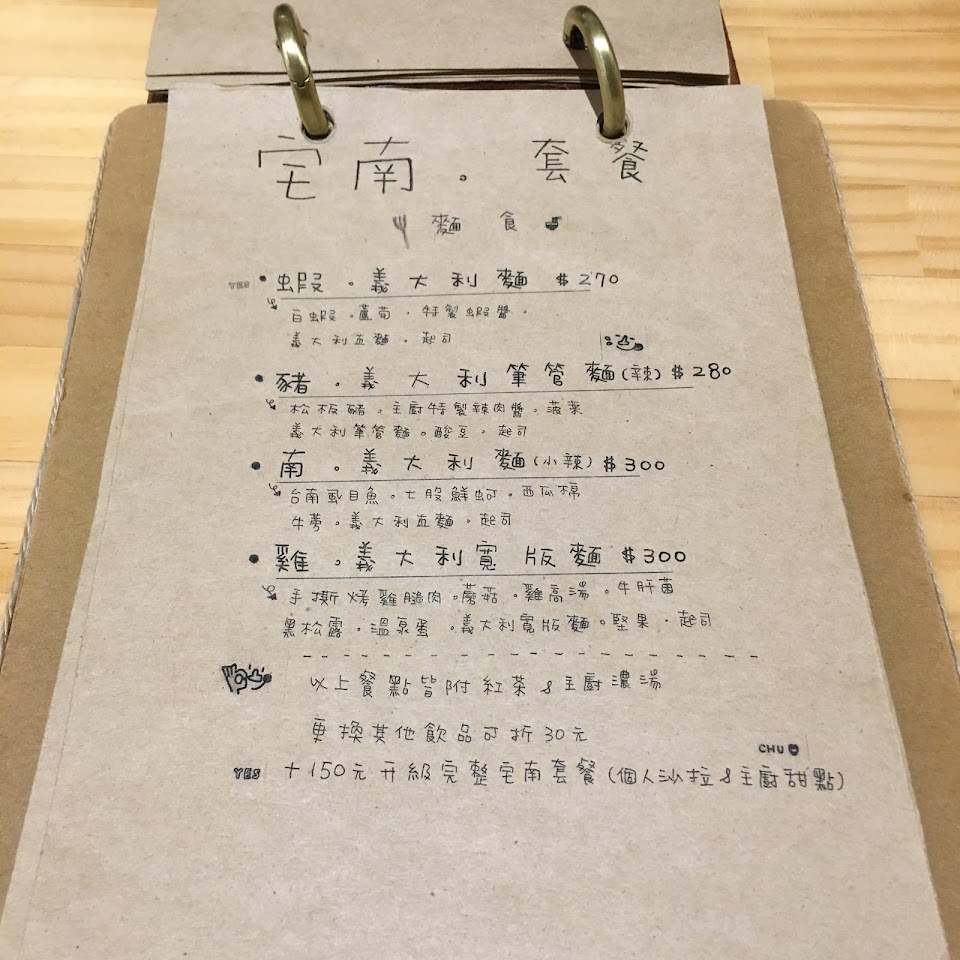 宅南。套餐
麵食
YES • 蝦。義大利麵 $270
白蝦。蘆筍。特製蝦醬。
義大利直麵。起司
• 豬。義大利筆管麵(辣) $280
松板豬。主廚特製辣肉醬。菠菜
義大利筆管麵。酸豆。起司
• 南。義大利麵(小辣) $300
台南虱目魚。七股鮮蚵。西瓜棉
牛蒡。義大利直麵。起司
• 雞。義大利寬版麵 $300
手撕烤雞腿肉。蘑菇。雞高湯。牛肝菌
黑松露。溫泉蛋。義大利寬版麵。堅果。起司
以上餐點皆附紅茶&主廚濃湯
更換其他飲品可折30元
CHU
YES +150元升級完整宅南套餐(個人沙拉&主廚甜點)